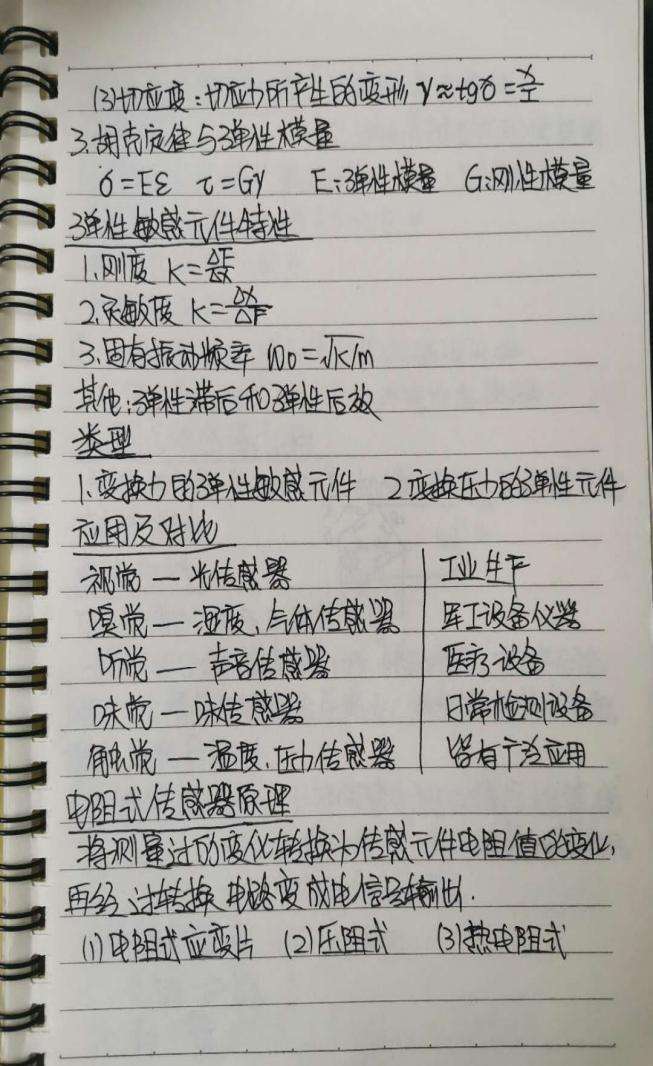 (3)切应变:切应力所产生的变形 γ≈tgγ=x/L
3.胡克定律与弹性模量
σ=Eε τ=Gγ E:弹性模量 G:刚性模量
弹性敏感元件特性
1.刚度 K=ΔF/ΔX
2.灵敏度 K=ΔX/ΔF
3.固有振动频率 ω₀=√K/m
其他:弹性滞后和弹性后效
类型
1.变换力的弹性敏感元件 2.变换压力的弹性元件
应用及对比
视觉 — 光传感器 工业生产
嗅觉 — 湿度、气体传感器 军工设备仪器
听觉 — 声音传感器 医疗设备
味觉 — 味传感器 日常检测设备
触觉 — 温度、压力传感器 皆有广泛应用
电阻式传感器原理
将测量过的变化转换为传感元件电阻值的变化,
再经过转换电路变成电信号输出.
(1)电阻式应变片 (2)压阻式 (3)热电阻式